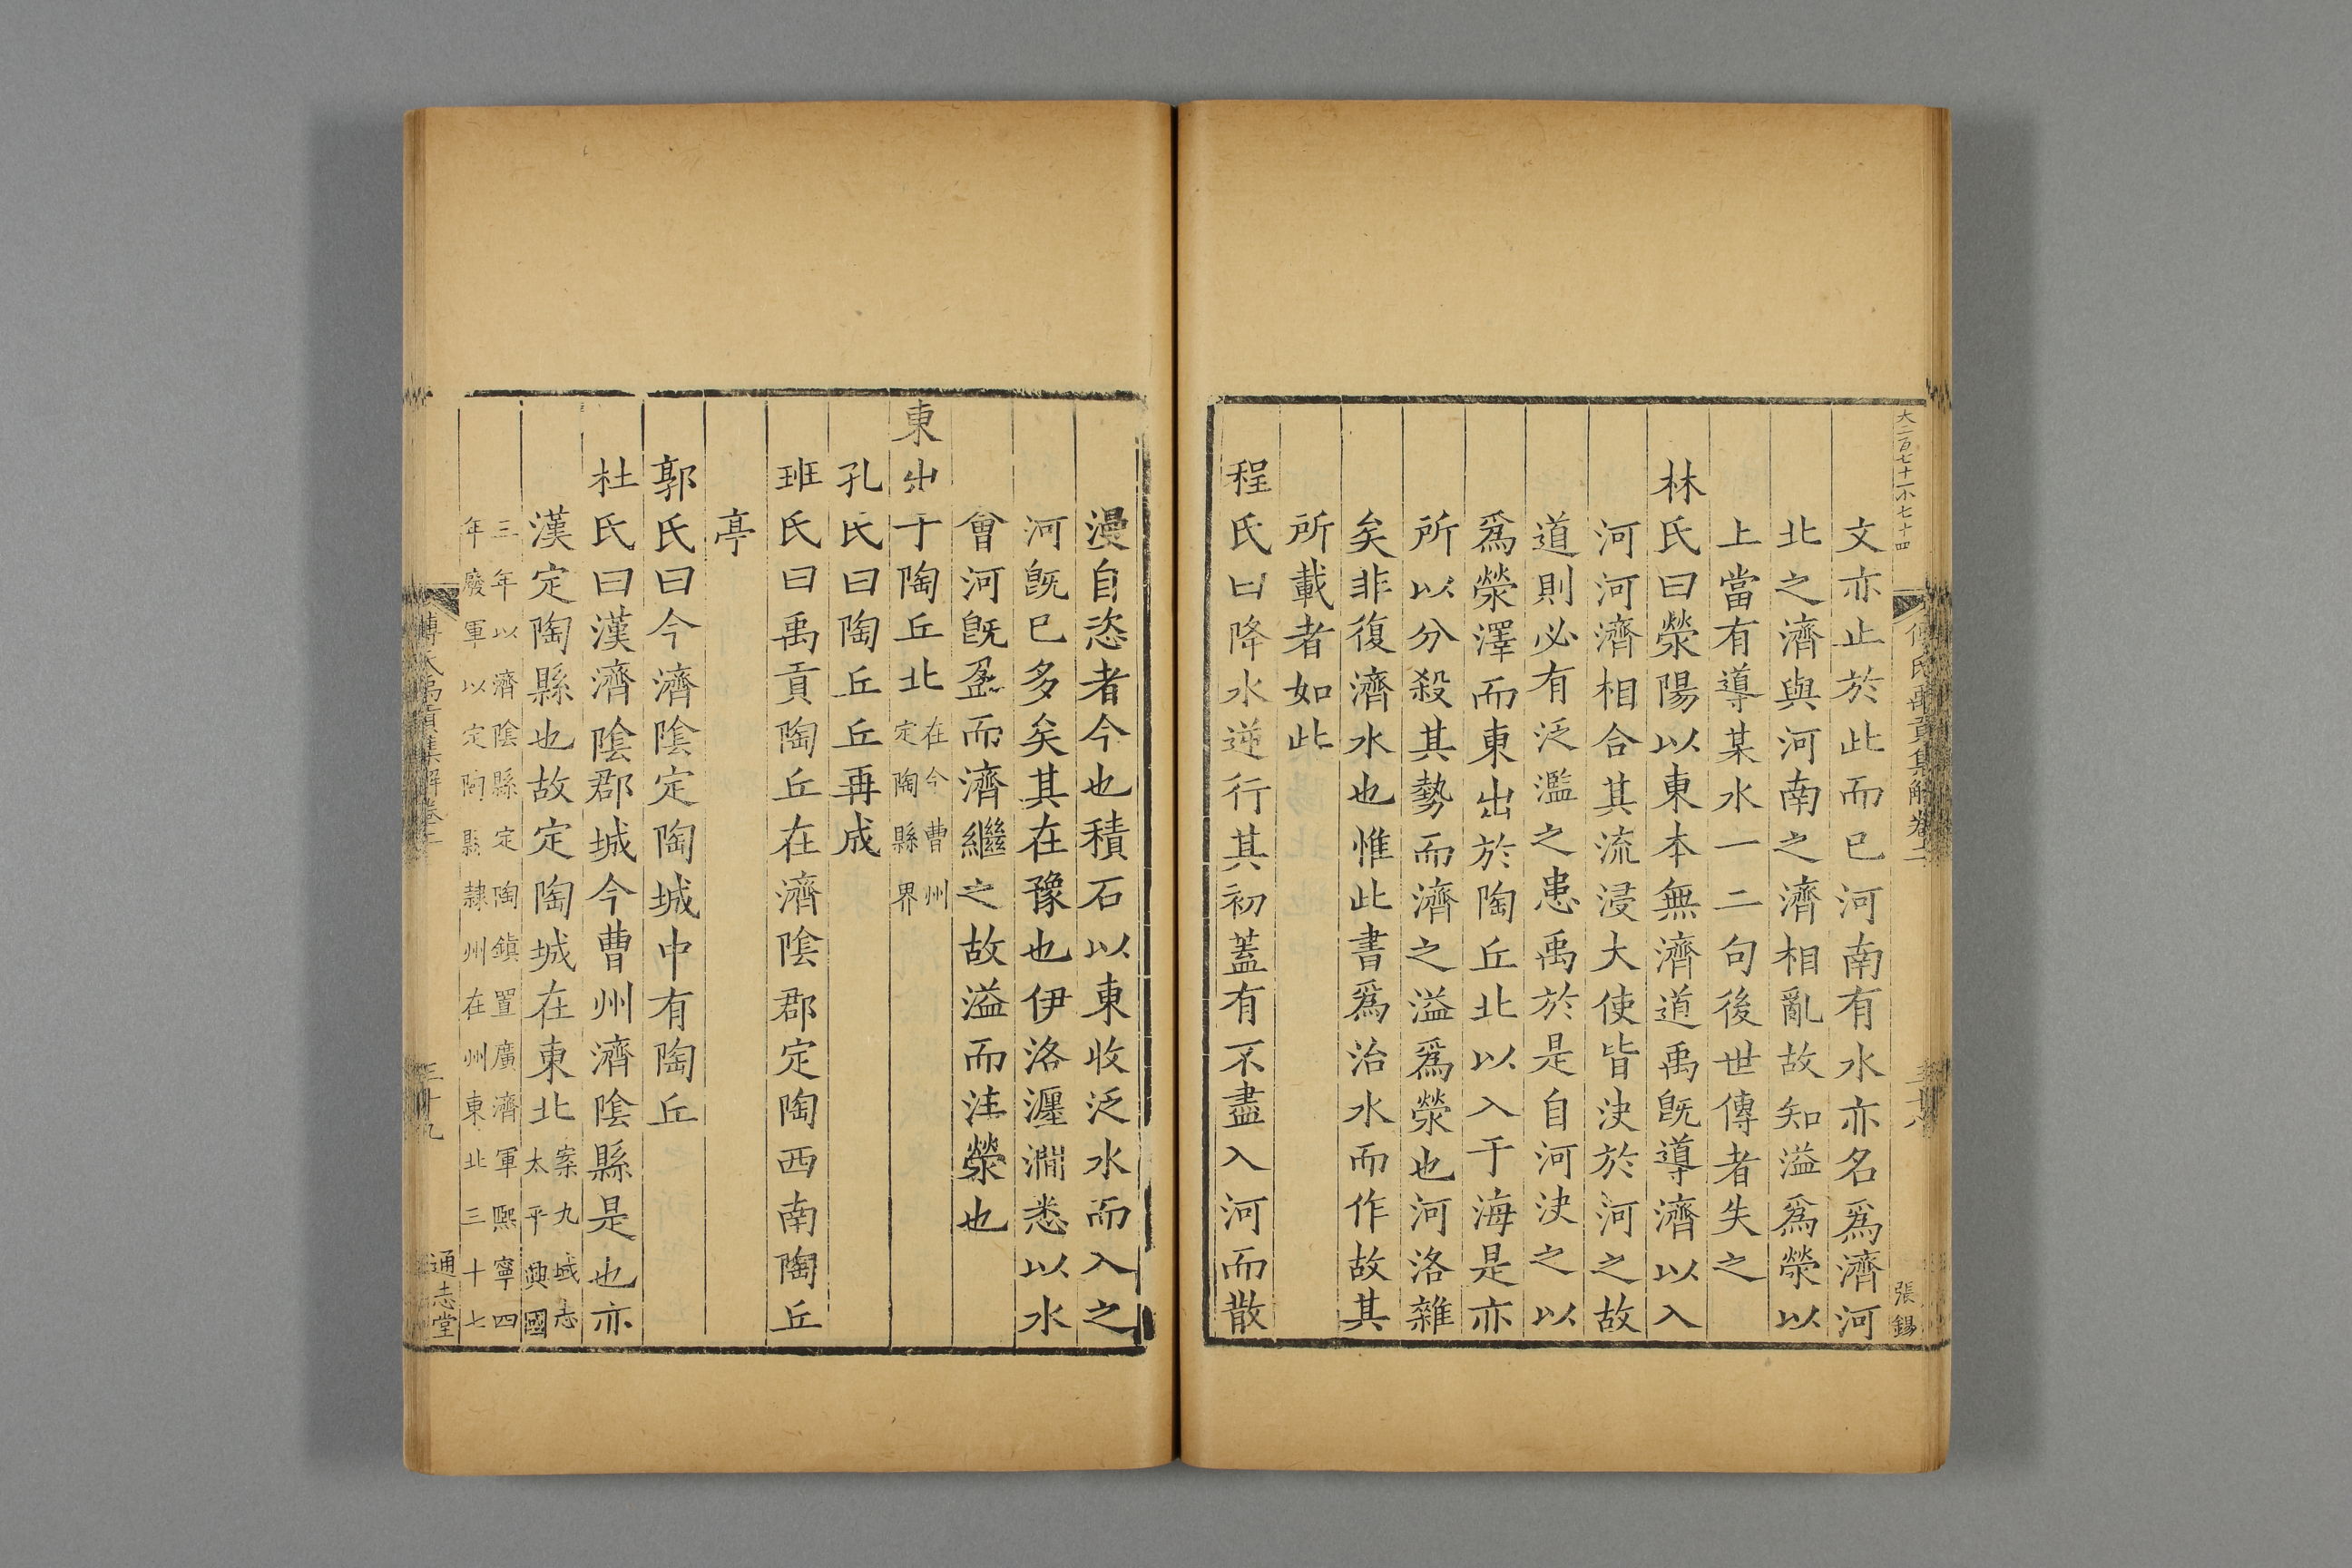 大二百七十一小七十四
傅氏禹貢集解卷二
張錫
文亦止於此而已河南有水亦名爲濟河
北之濟與河南之濟相亂故知溢爲滎以
上當有導某水一二句後世傳者失之
林氏曰滎陽以東本無濟道禹旣導濟以入
河河濟相合其流浸大使皆決於河之故
道則必有泛濫之患禹於是自河決之以
爲滎澤而東出於陶丘北以入于海是亦
所以分殺其勢而濟之溢爲滎也河洛雜
矣非復濟水也惟此書爲治水而作故其
所載者如此
程氏曰降水逆行其初蓋有不盡入河而散
漫自恣者今也積石以東收泛水而入之
河旣已多矣其在豫也伊洛瀍澗悉以水
會河旣盈而濟繼之故溢而注滎也
東出于陶丘北在今曹州定陶縣界
孔氏曰陶丘丘再成
班氏曰禹貢陶丘在濟陰郡定陶西南陶丘
亭
郭氏曰今濟陰定陶城中有陶丘
杜氏曰漢濟陰郡城今曹州濟陰縣是也亦
漢定陶縣也故定陶城在東北案九域志太平興國
三年以濟陰縣定陶鎮置廣濟軍熙寧四年廢軍以定陶縣隷州在州東北三十七
傅氏禹貢集解卷二
三十九
通志堂